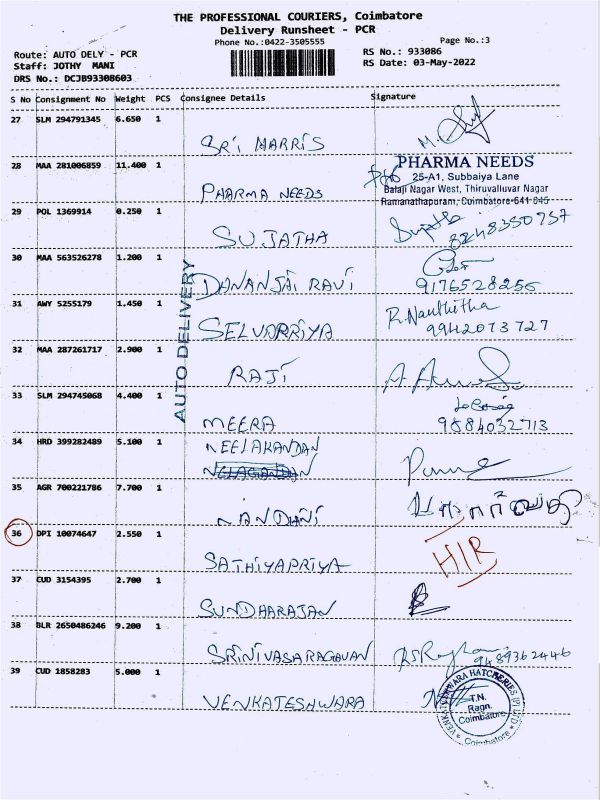 THE PROFESSIONAL COURIERS, Coimbatore
Delivery Runsheet - PCR
Phone No.:0422-3505555
Page No.:3
Route: AUTO DELY - PCR
RS No.: 933086
Staff: JOTHY MANI
RS Date: 03-May-2022
DRS No.: DCJB93308603
S No Consignment No Weight PCS Consignee Details Signature
27 SLM 294791345 6.650 1
SRI HARRIS
28 MAA 281006859 11.400 1
PHARMA NEEDS
PHARMA NEEDS
25-A1, Subbaiya Lane
Balaji Nagar West, Thiruvalluvar Nagar
Ramanathapuram, Coimbatore-641 045
29 POL 1369914 0.250 1
SUJATHA
Sujatha
8248350757
30 MAA 563526278 1.200 1
DANANJAI RAVI
9176528255
AUTO DELIVERY
31 AWY 5255179 1.450 1
SELVAPRIYA
R. Nanthitha
9942073727
32 MAA 287261717 2.900 1
RAJI
33 SLM 294745068 4.400 1
MEERA
9884032713
34 HRD 399282489 5.100 1
NEELAKANDAN
NELAGANDAN
35 AGR 700221786 7.700 1
NANDHINI
36 DPI 10074647 2.550 1
SATHIYAPRIYA
HIR
37 CUD 3154395 2.700 1
SUNDAARAJAN
38 BLR 2650486246 9.200 1
SRINIVASARAGAVAN
9489362446
39 CUD 1858283 5.000 1
VENKATESHWARA
VENKATESHWARA HATCHERIES (P) LTD
T.N.
Regn.
Coimbatore
Coimbatore